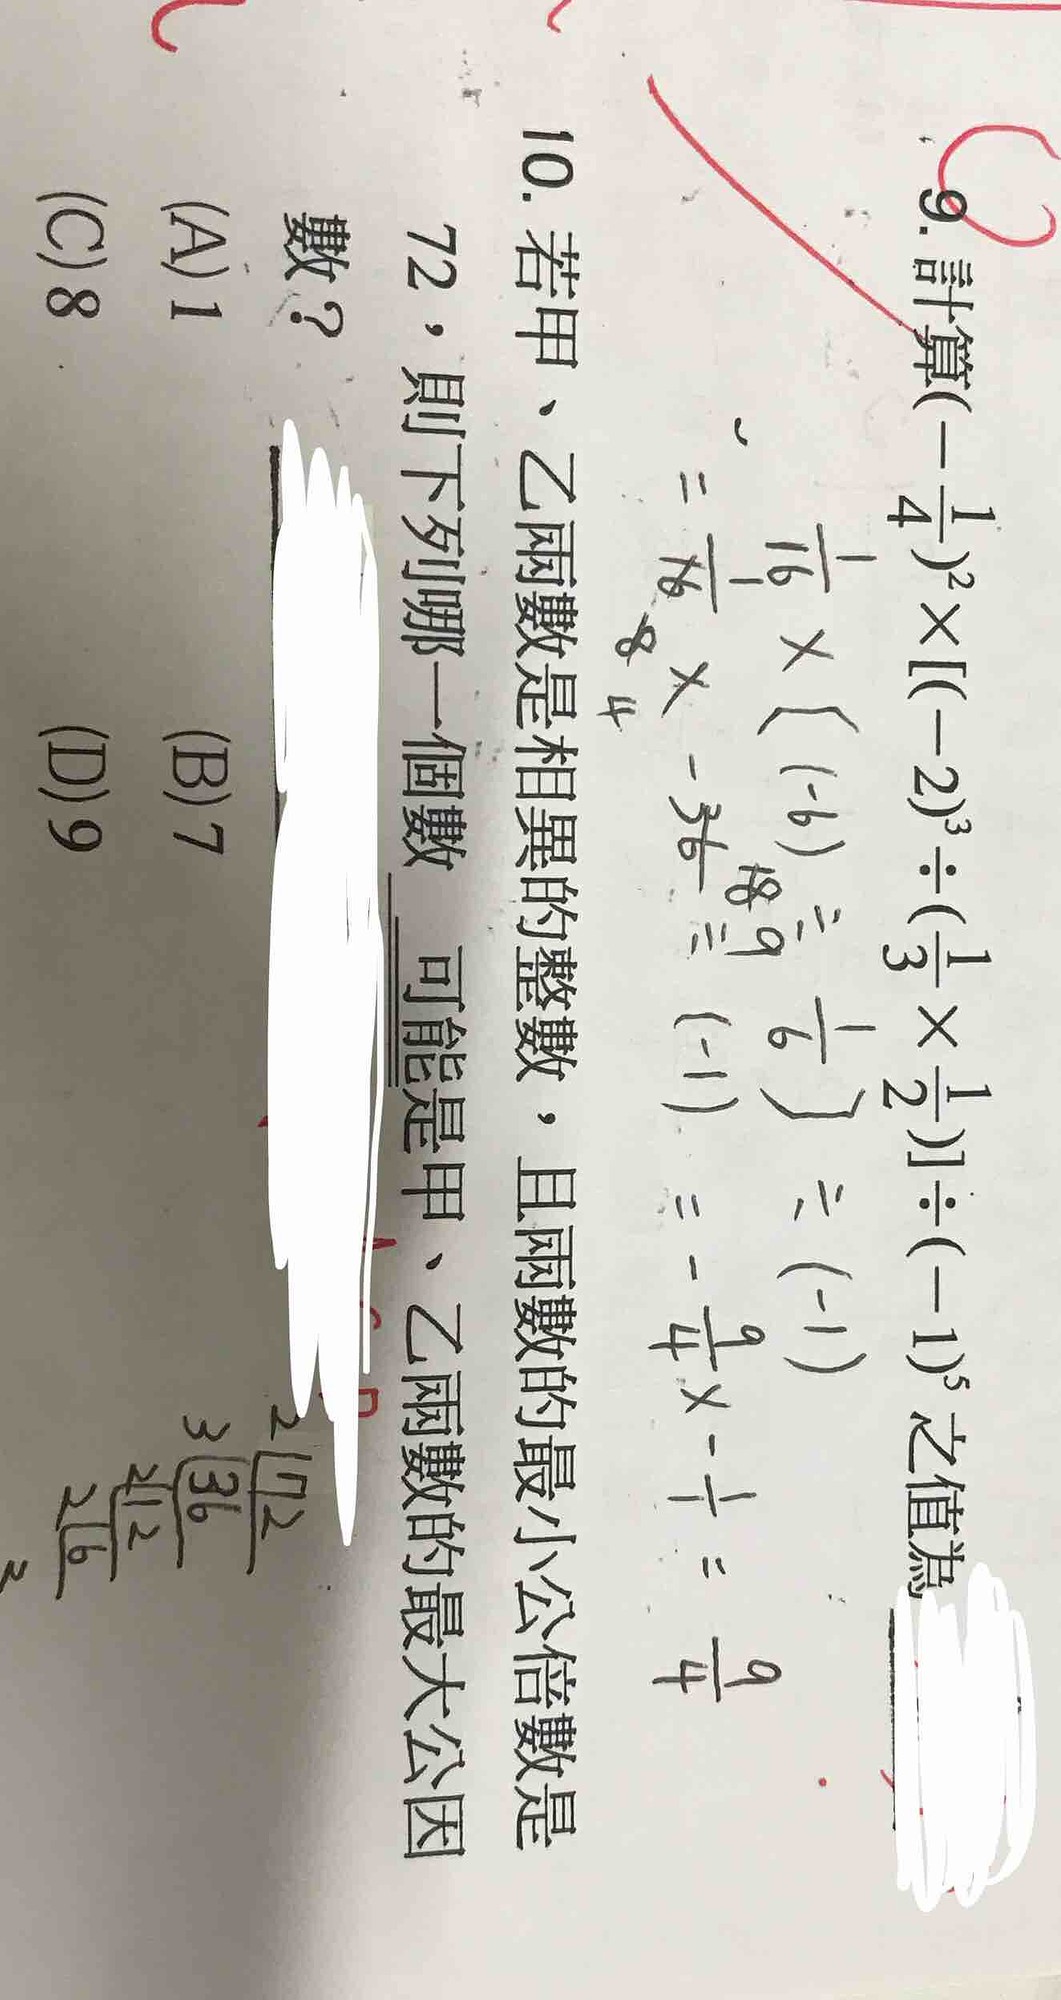 9. 計算(−1/4)²×[(−2)³÷(1/3×1/2)]÷(−1)⁵之值為
1/16 × [(-6) ÷ 1/6] ÷ (-1)
18 9
= 1/16 × -36 ÷ (-1) = -9/4 × -1/1 = 9/4
8 4
10. 若甲、乙兩數是相異的整數，且兩數的最小公倍數是
72，則下列哪一個數 可能是甲、乙兩數的最大公因
數？
(A) 1 (B) 7
(C) 8 (D) 9
2 72
3 36
2 12
2 6